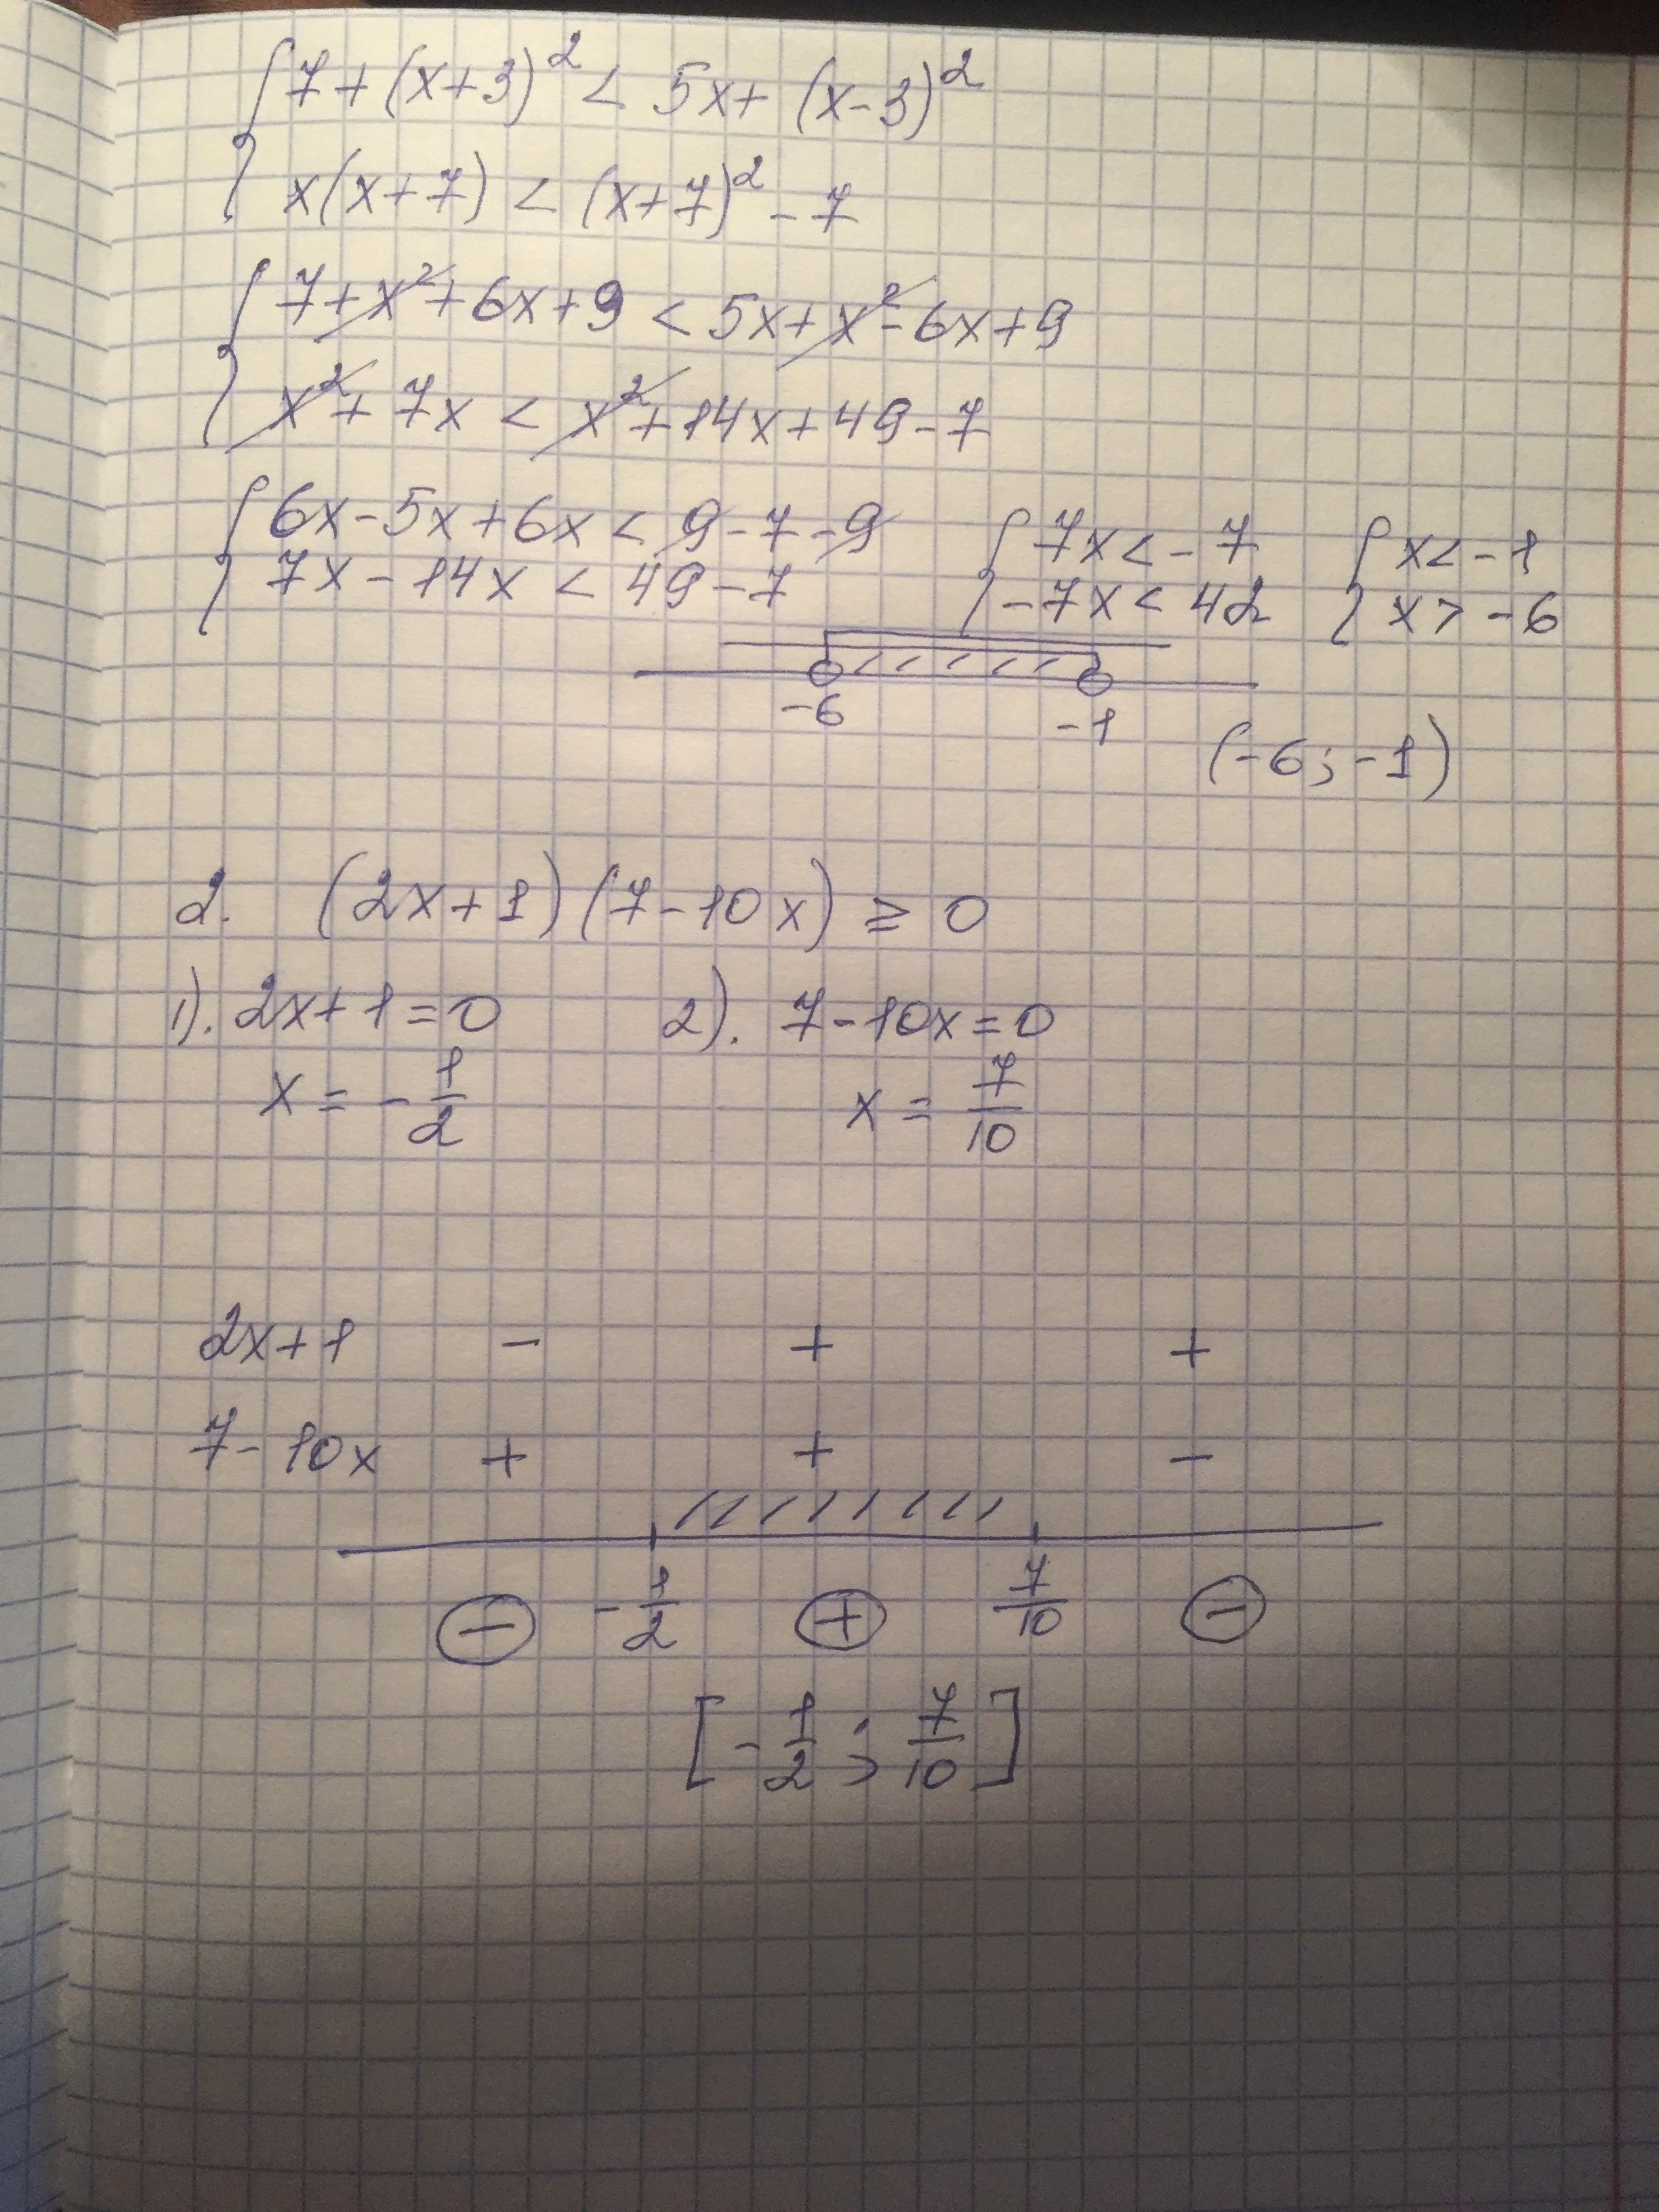 { 7 + (x+3)² < 5x + (x-3)²
x(x+7) < (x+7)² - 7
{ 7 + x² + 6x + 9 < 5x + x² - 6x + 9
x² + 7x < x² + 14x + 49 - 7
{ 6x - 5x + 6x < 9 - 7 - 9 { 7x < -7 { x < -1
7x - 14x < 49 - 7 -7x < 42 x > -6
-6 -1
(-6; -1)
2. (2x+1)(7-10x) ≥ 0
1). 2x+1=0 2). 7-10x=0
x = -1/2 x = 7/10
2x+1 - + +
7-10x + + -
- -1/2 + 7/10 -
[-1/2; 7/10]